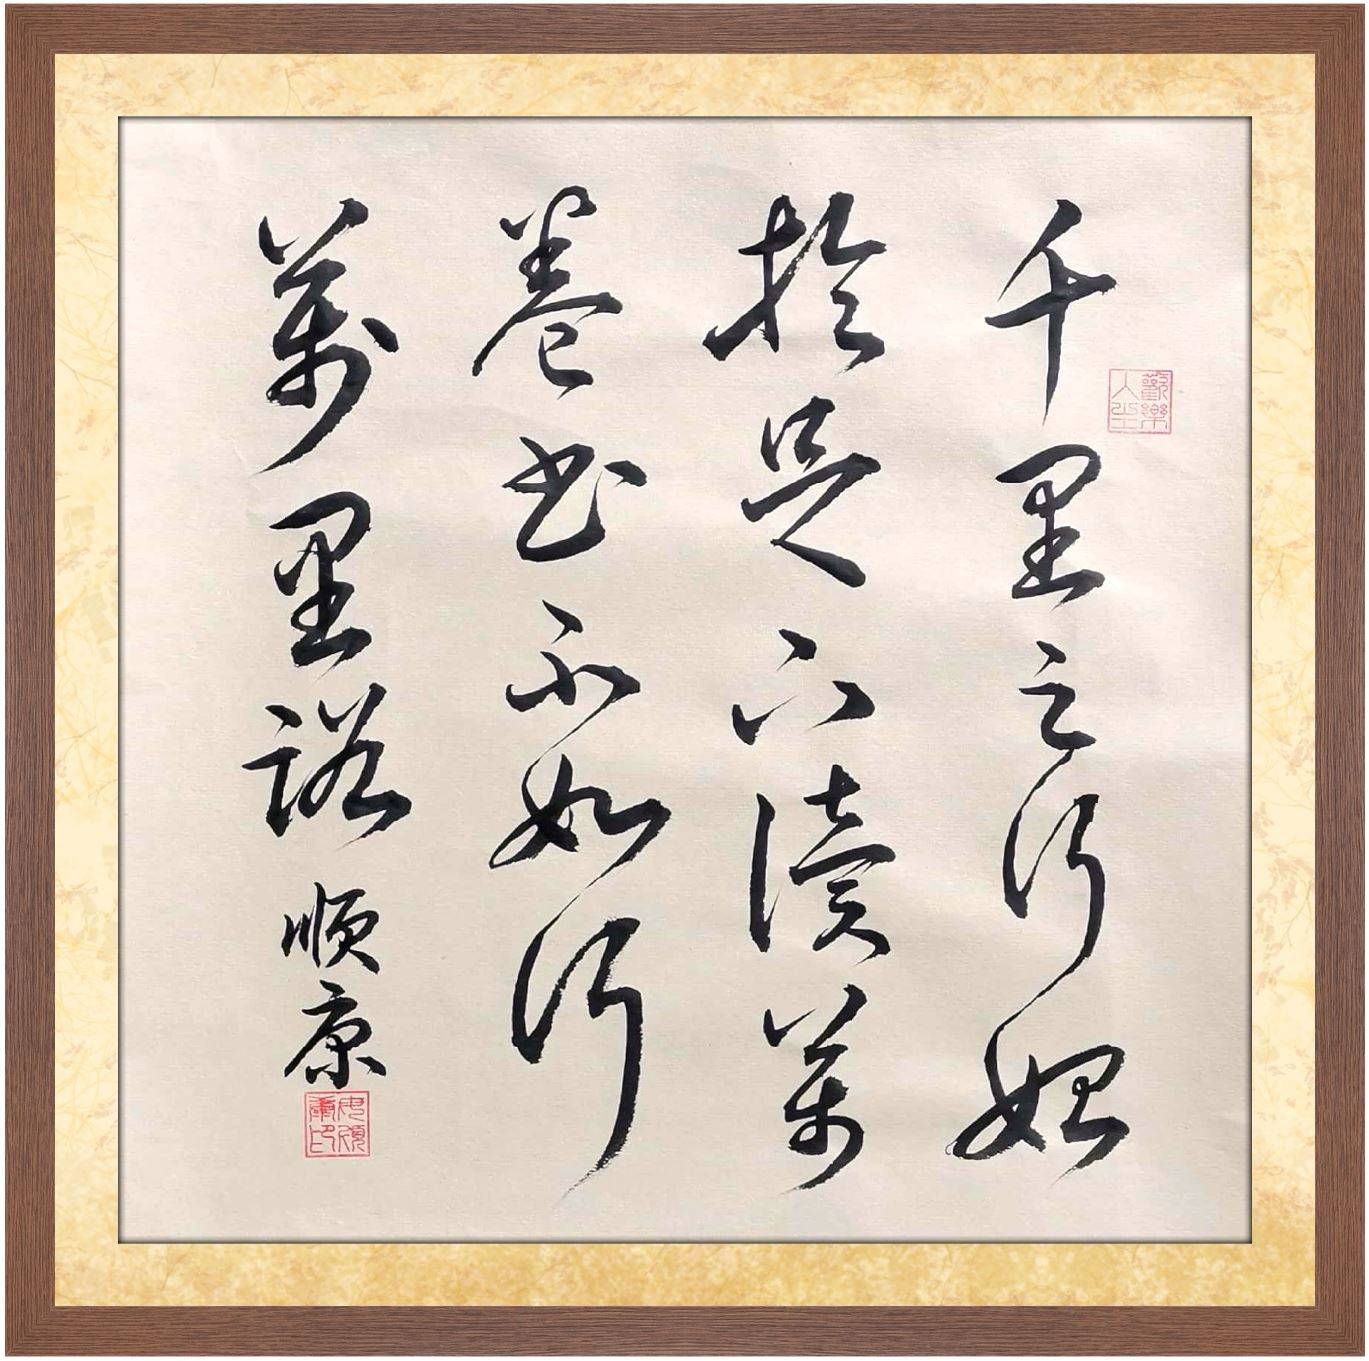 歡樂人生
千里之行始
於足下讀萬
卷書不如行
萬里路 順康